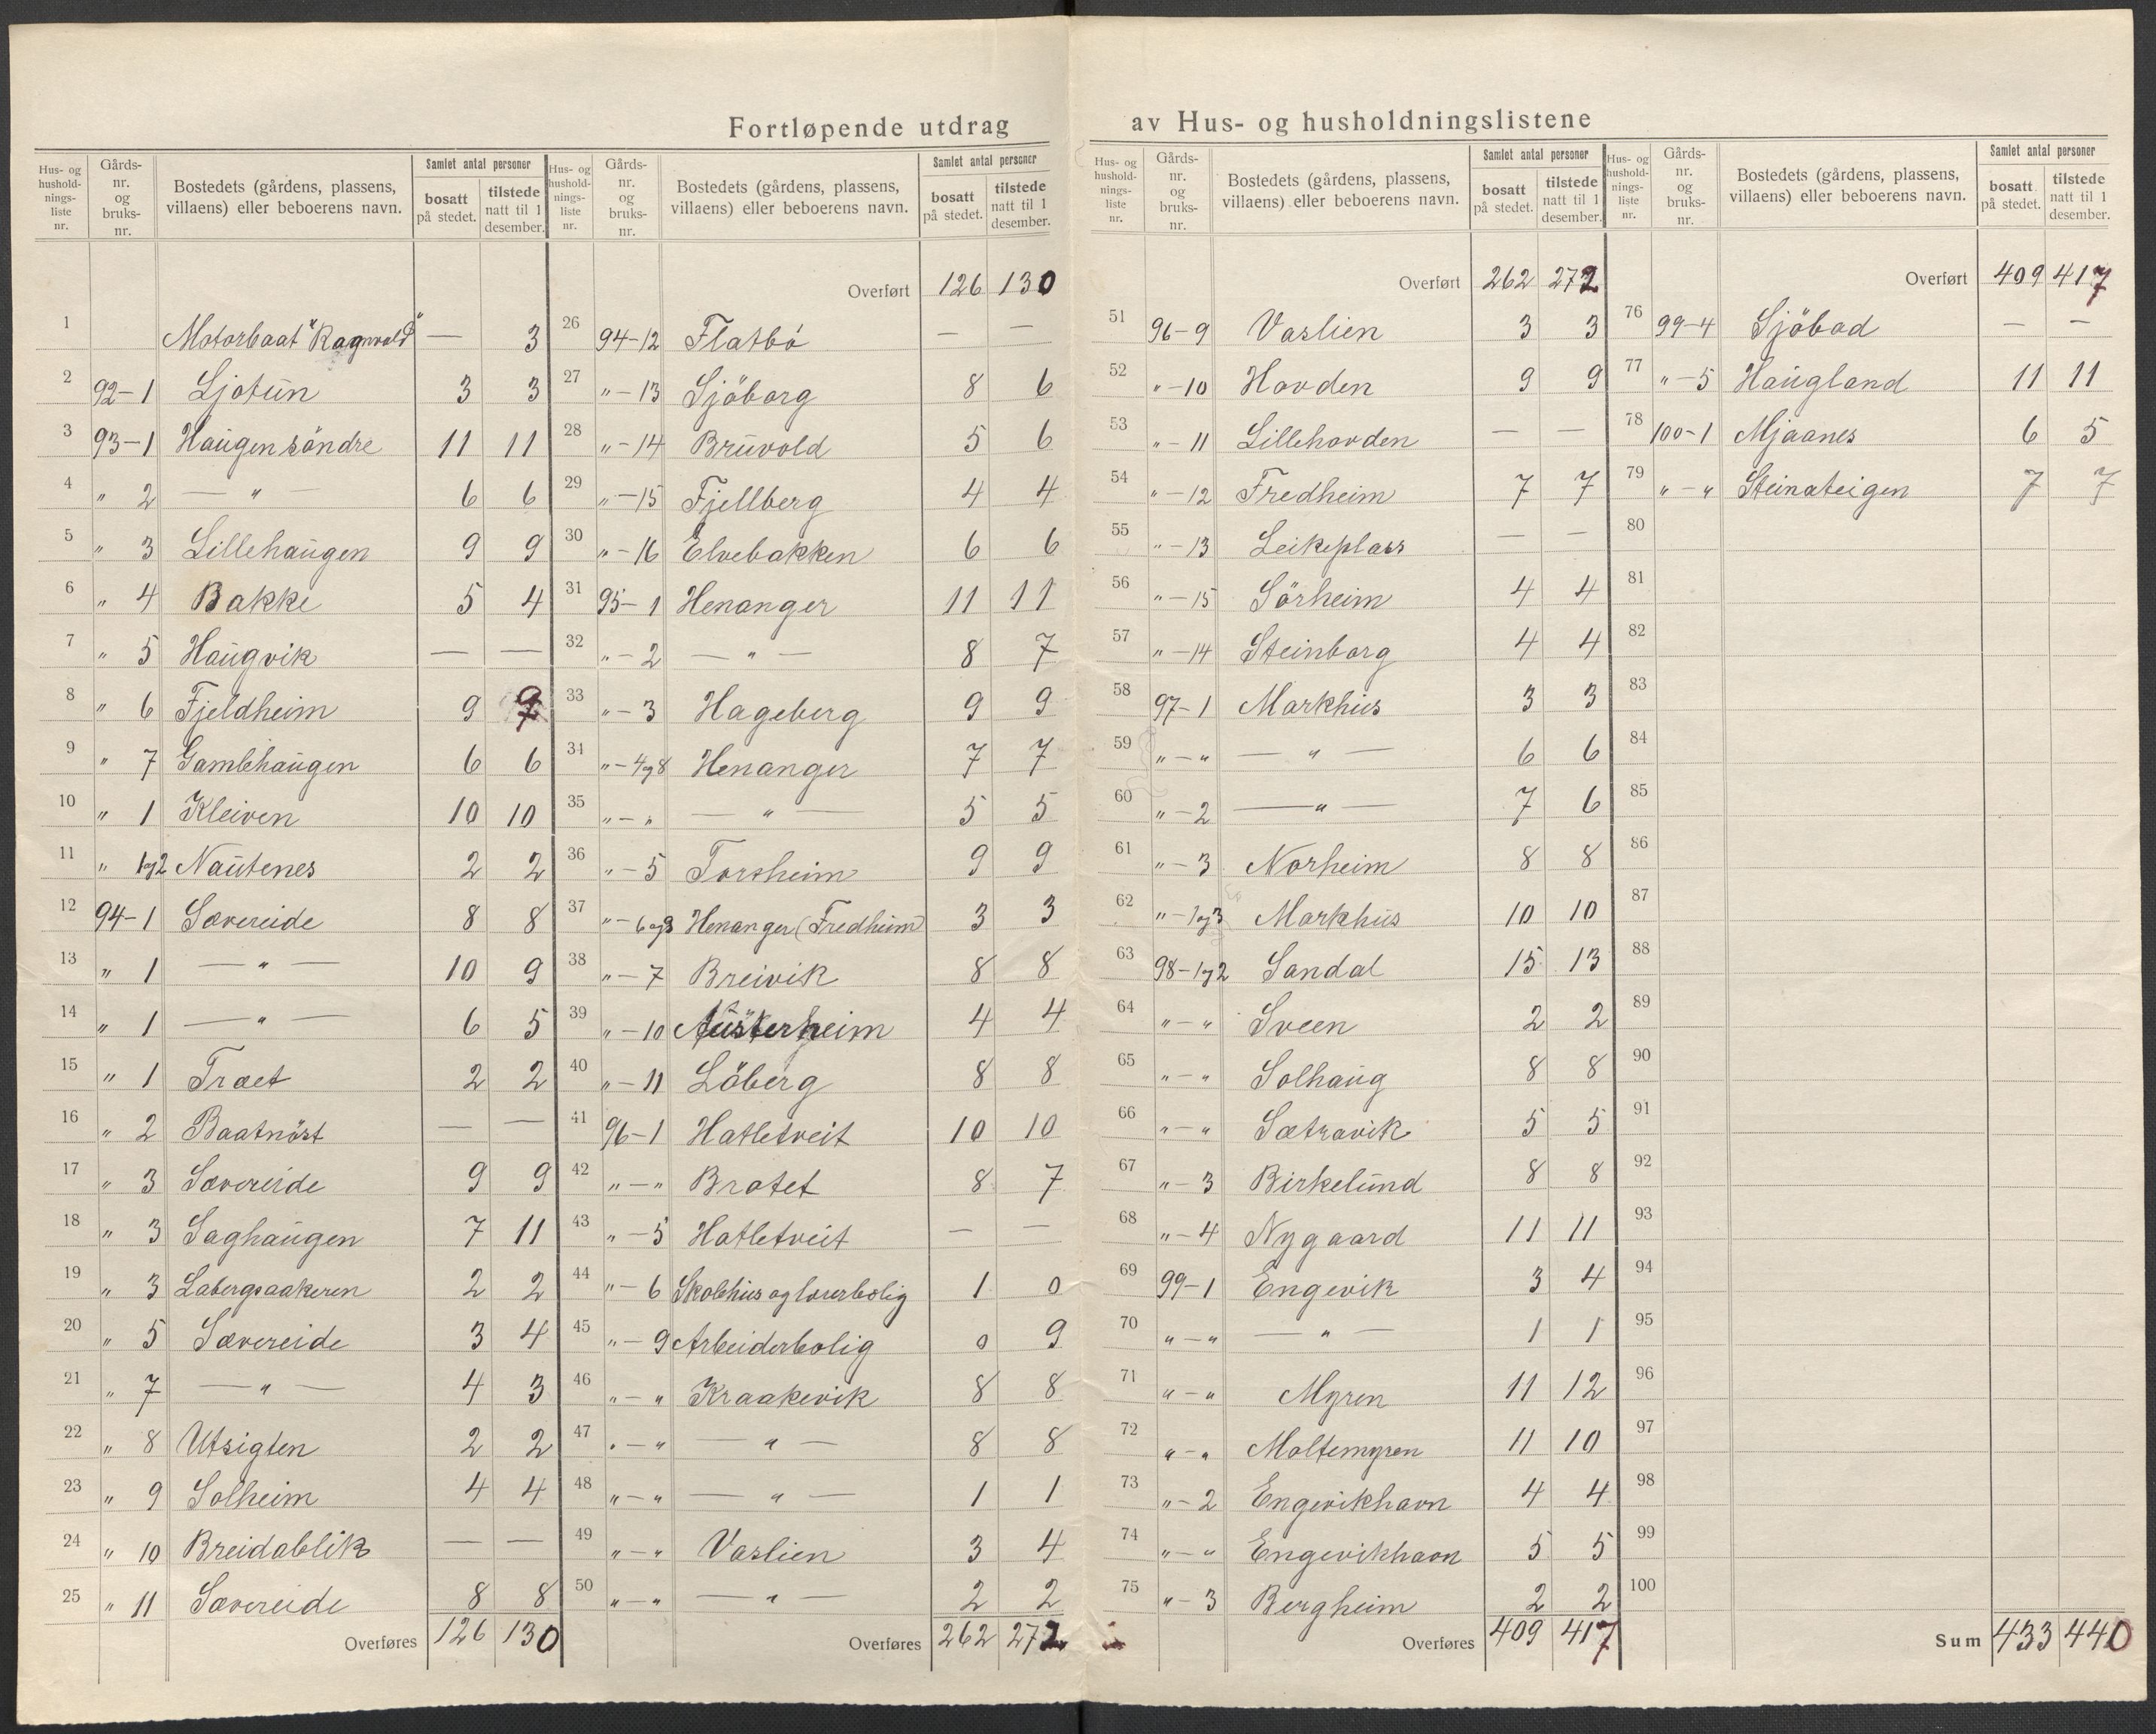 Fortløpende utdrag av Hus- og husholdningslistene
Hus- og husholdnings-liste nr. | Gårds-nr. og bruks-nr. | Bostedets (gårdens, plassens, villaens) eller beboerens navn. | Samlet antal personer | bosatt på stedet. | tilstede natt til 1 desember.
1 Motorbaat "Ragnvald" — 3
2 92-1 Ljotun 3 3
3 93-1 Haugen söndre 11 11
4 " 2 — " — 6 6
5 " 3 Lillehaugen 9 9
6 " 4 Bakke 5 4
7 " 5 Haugvik — —
8 " 6 Fjeldheim 9 9
9 " 7 Gamlehaugen 6 6
10 " 1 Kleiven 10 10
11 " 1og2 Nautenes 2 2
12 94-1 Sævereide 8 8
13 " 1 — " — 10 9
14 " 1 — " — 6 5
15 " 1 Træet 2 2
16 " 2 Baatnöst — —
17 " 3 Sævereide 9 9
18 " 3 Saghaugen 7 11
19 " 3 Labergsaakeren 2 2
20 " 5 Sævereide 3 4
21 " 7 — " — 4 3
22 " 8 Utsigten 2 2
23 " 9 Solheim 4 4
24 " 10 Breidablik — —
25 " 11 Sævereide 8 8
Overføres 126 130
Hus- og husholdnings-liste nr. | Gårds-nr. og bruks-nr. | Bostedets (gårdens, plassens, villaens) eller beboerens navn. | Samlet antal personer | bosatt på stedet. | tilstede natt til 1 desember.
Overført 126 130
26 94-12 Flatbö — —
27 " -13 Sjöborg 8 6
28 " -14 Bruvold 5 6
29 " -15 Fjellberg 4 4
30 " -16 Elvebakken 6 6
31 95-1 Henanger 11 11
32 " -2 — " — 8 7
33 " -3 Hageberg 9 9
34 " -4og8 Henanger 7 7
35 " - " — " — 5 5
36 " -5 Torsheim 9 9
37 " -6og9 Henanger (Fredheim) 3 3
38 " -7 Breivik 8 8
39 " -10 Austerheim 4 4
40 " -11 Löberg 8 8
41 96-1 Hatletveit 10 10
42 " - " Brotet 8 7
43 " -5 Hatletveit — —
44 " -6 Skolehus og lærerbolig 1 0
45 " -9 Arbeiderbolig 0 9
46 " - " Kraakevik 8 8
47 " - " — " — 8 8
48 " - " — " — 1 1
49 " - " Vaslien 3 4
50 " - " — " — 2 2
Overføres 262 272
Hus- og husholdnings-liste nr. | Gårds-nr. og bruks-nr. | Bostedets (gårdens, plassens, villaens) eller beboerens navn. | Samlet antal personer | bosatt på stedet. | tilstede natt til 1 desember.
Overført 262 272
51 96-9 Vaslien 3 3
52 " -10 Hovden 9 9
53 " -11 Lillehovden — —
54 " -12 Fredheim 7 7
55 " -13 Leikeplass — —
56 " -15 Sörheim 4 4
57 " -14 Steinborg 4 4
58 97-1 Markhus 3 3
59 " - " — " — 6 6
60 " -2 — " — 7 6
61 " -3 Norheim 8 8
62 " -1og3 Markhus 10 10
63 98-1og2 Sandal 15 13
64 " - " Sveen 2 2
65 " - " Solhaug 8 8
66 " - " Sætravik 5 5
67 " -3 Birkelund 8 8
68 " -4 Nygaard 11 11
69 99-1 Engevik 3 4
70 " - " — " — 1 1
71 " - " Myren 11 12
72 " - " Moltemyren 11 10
73 " -2 Engevikhavn 4 4
74 " - " Engevikhavn 5 5
75 " -3 Bergheim 2 2
Overføres 409 417
Hus- og husholdnings-liste nr. | Gårds-nr. og bruks-nr. | Bostedets (gårdens, plassens, villaens) eller beboerens navn. | Samlet antal personer | bosatt på stedet. | tilstede natt til 1 desember.
Overført 409 417
76 99-4 Sjöbad — —
77 " -5 Haugland 11 11
78 100-1 Mjaanes 6 5
79 " - " Steinateigen 7 7
80
81
82
83
84
85
86
87
88
89
90
91
92
93
94
95
96
97
98
99
100
Sum 433 440